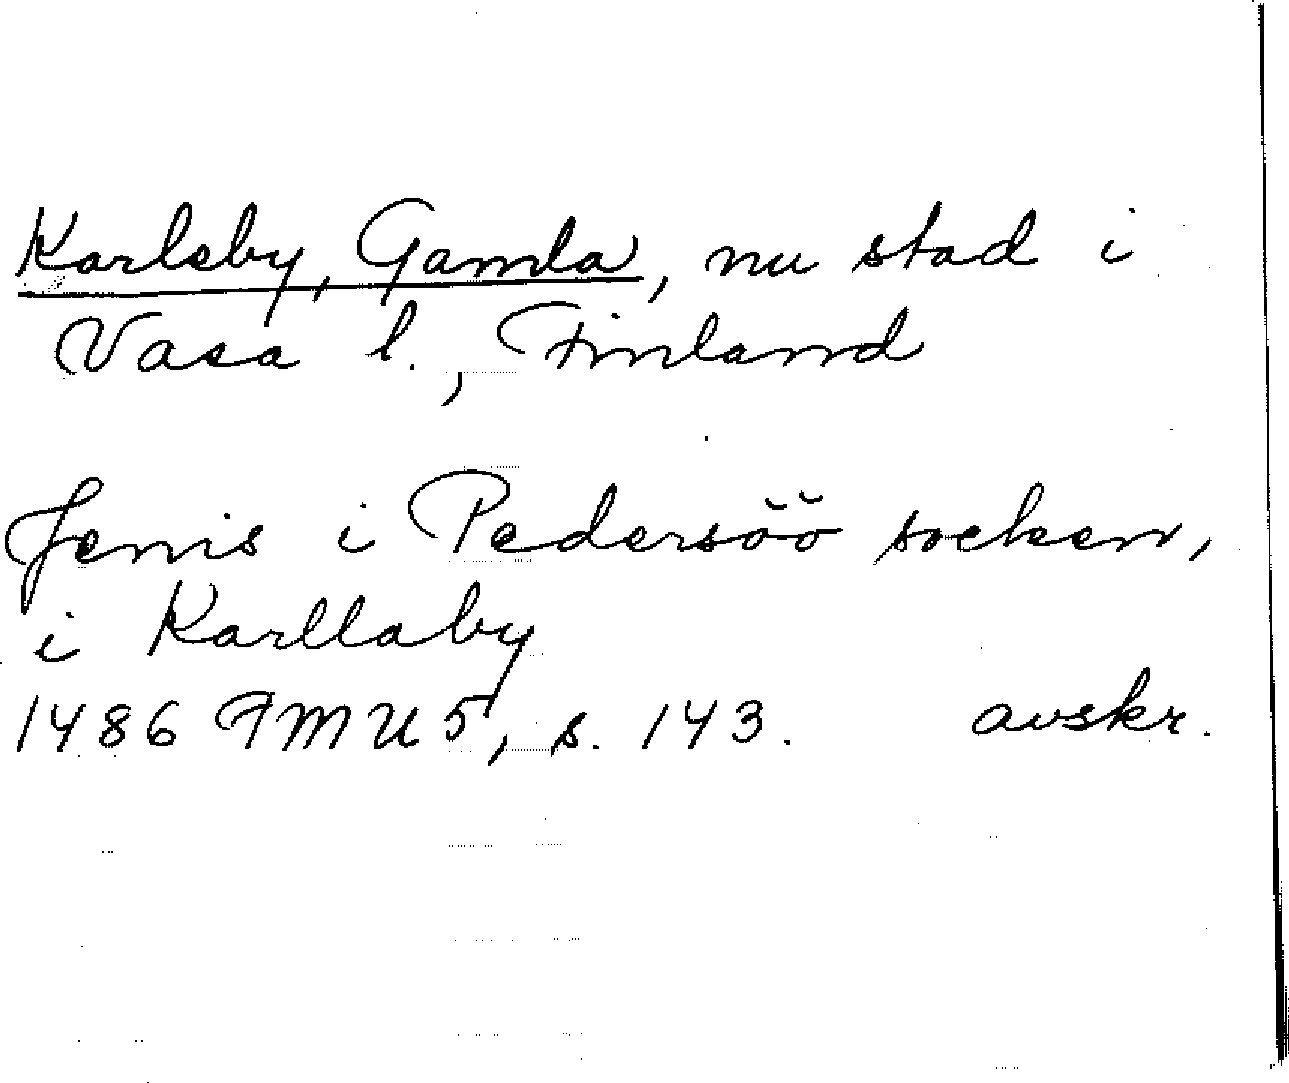 Karlsby, Gamla, nu stad i
Vasa l., Finland
Jenis i Pedersöö socken,
i Karllaby
1486 FMU 5, s. 143. avskr.